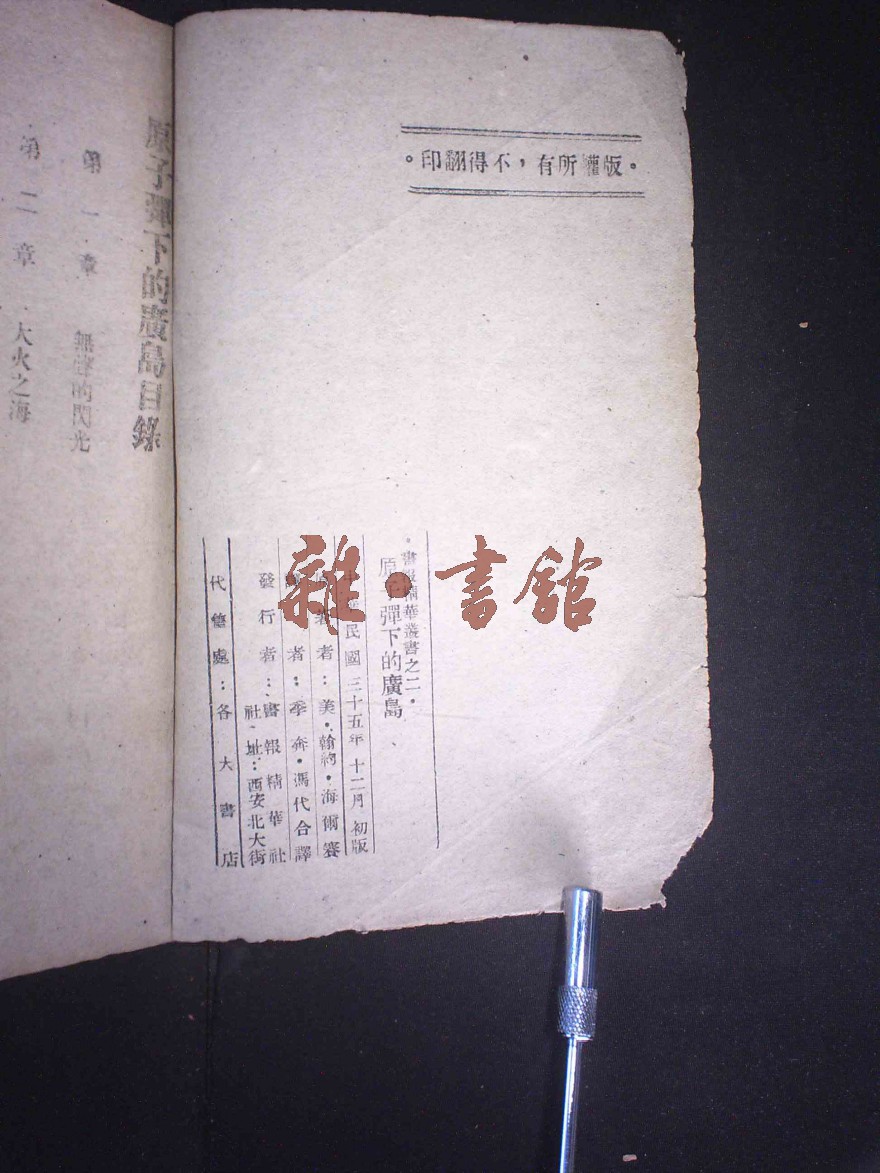 。印翻得不,有所權版。
・書報精華叢書之二・
原子彈下的廣島
中華民國三十五年十二月初版
原著者:美・翰約・海爾賽
譯者:季奔・馮代合譯
發行者:書報精華社
社址:西安北大街
代售處:各大書店
原子彈下的廣島目錄
第一章 無聲的閃光
第二章 大火之海
雜・書館